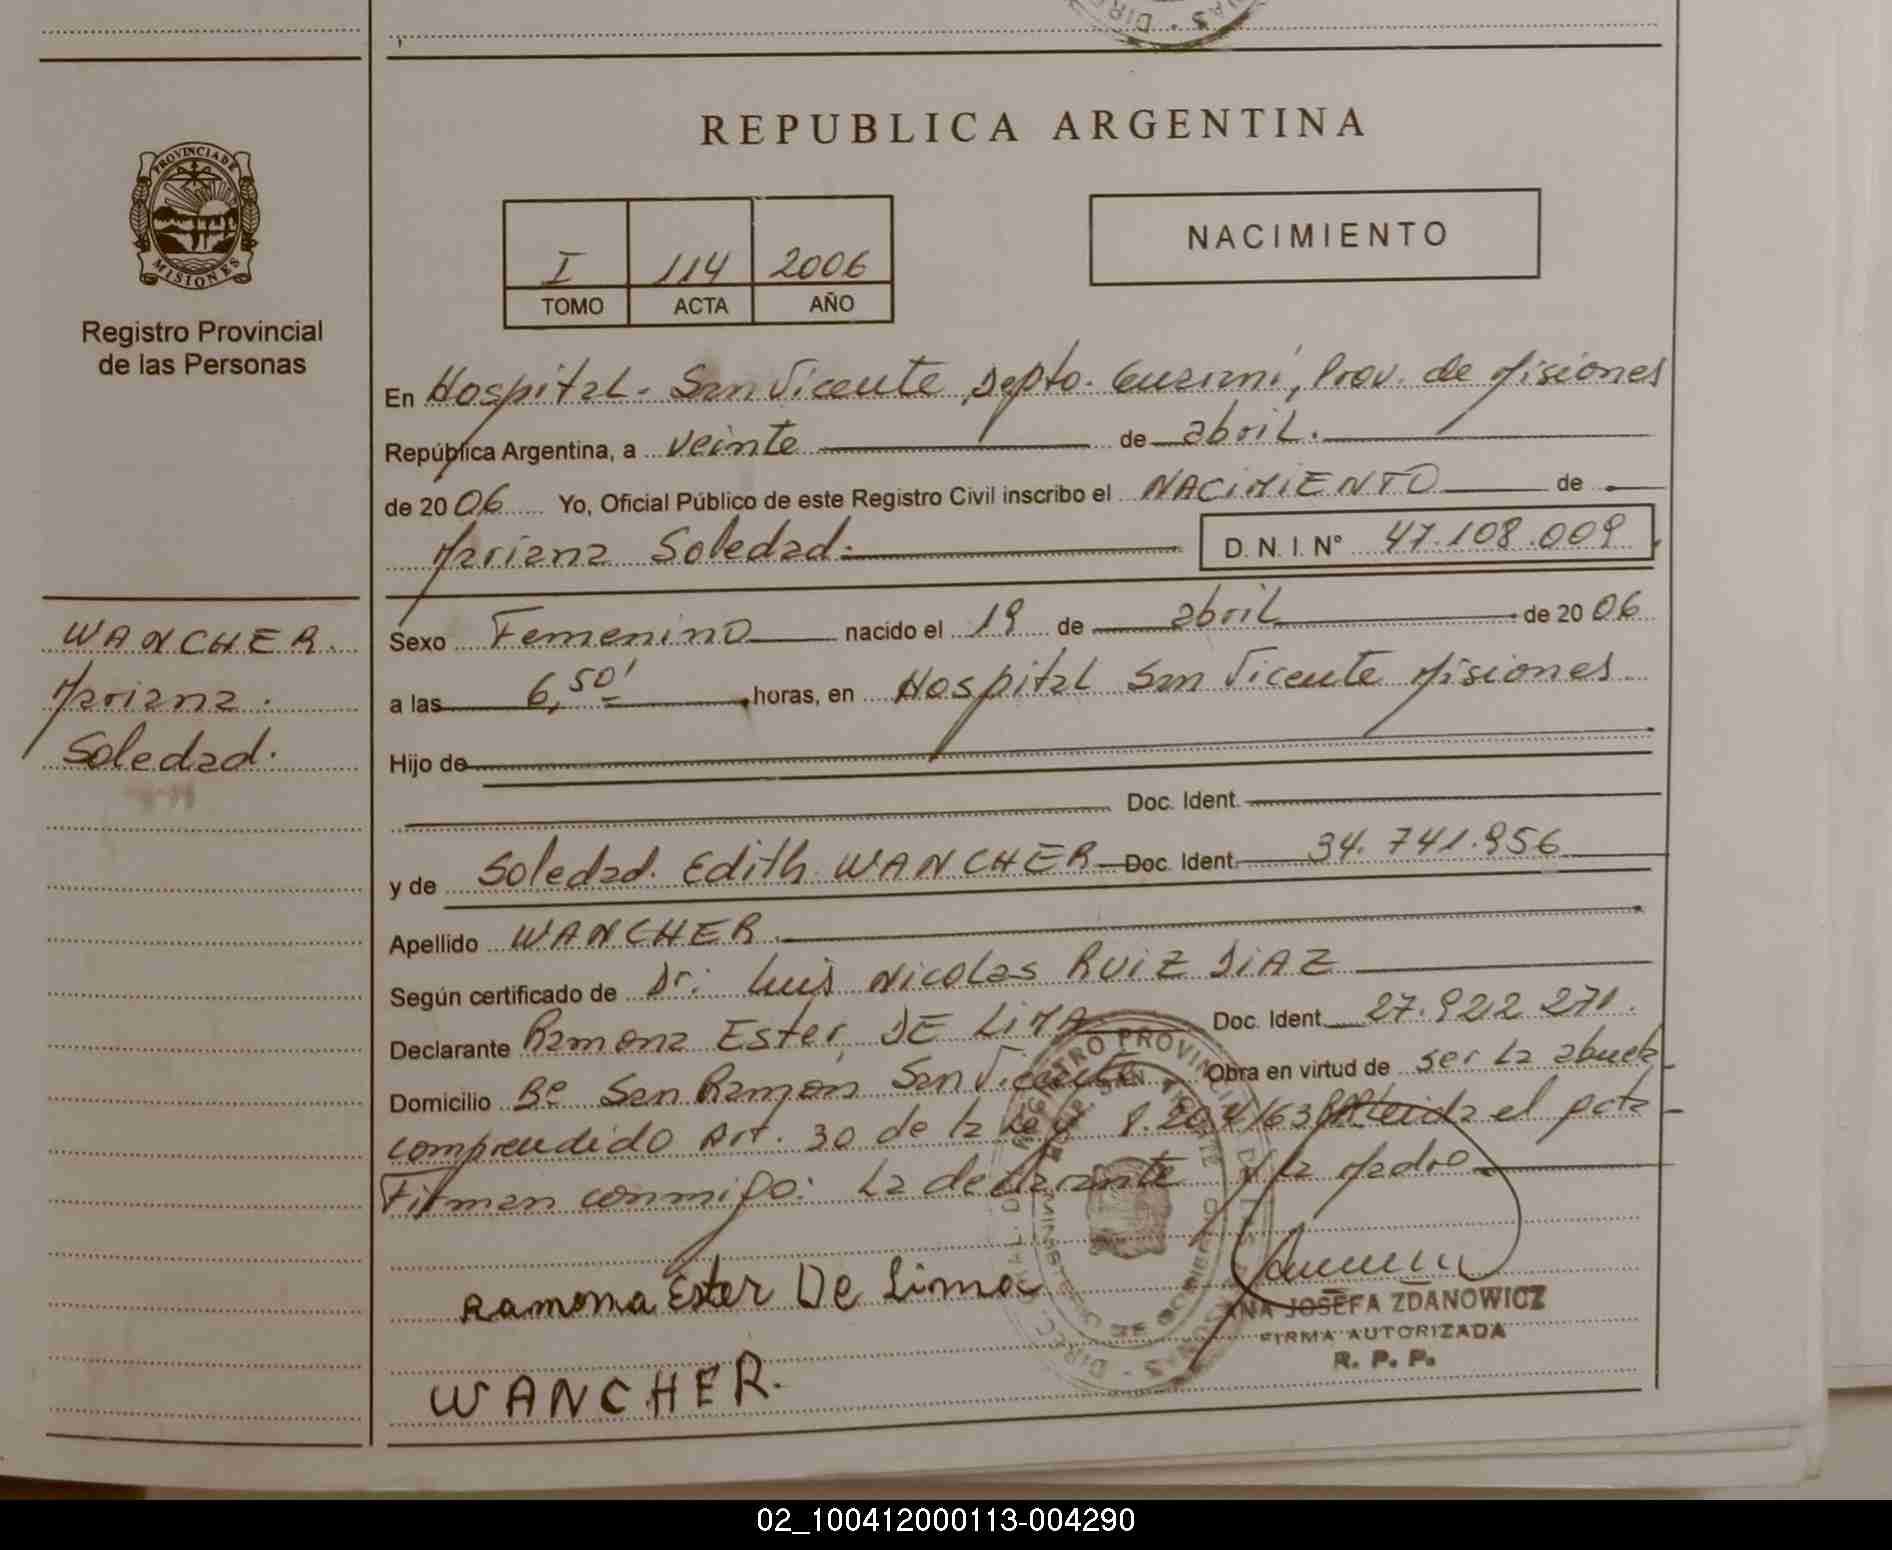 REPUBLICA ARGENTINA
PROVINCIA DE
MISIONES
Registro Provincial
de las Personas
I 114 2006
TOMO ACTA AÑO
NACIMIENTO
En Hospital - San Vicente, Depto. Guaraní, Prov. de Misiones
República Argentina, a veinte de abril.
de 2006 Yo, Oficial Público de este Registro Civil inscribo el NACIMIENTO de
Mariana Soledad. D. N. I. N° 47.108.009
WANCHER.
Mariana.
Soledad.
Sexo Femenino nacido el 19 de abril de 2006
a las 6,50' horas, en Hospital San Vicente Misiones
Hijo de
Doc. Ident.
y de Soledad Edith WANCHER Doc. Ident. 34.741.956
Apellido WANCHER.
Según certificado de Dr: Luis Nicolas RUIZ DIAZ
Declarante Ramona Ester, DE LIMA Doc. Ident. 27.922.271.
Domicilio Bº San Ramón San Vicente Obra en virtud de ser la abuela
comprendido Art. 30 de la Ley 8.204/63 leida el acta
Firman conmigo: La declarante y la Madre
Ramona Ester De Lima
ANA JOSEFA ZDANOWICZ
FIRMA AUTORIZADA
R. P. P.
WANCHER.
02_100412000113-004290